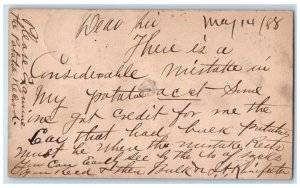 Dear Sir May 14/88
There is a
Considerable mistake in
My potato acct Some
one got credit for me the
Car that had bulk potatoes
Must be where the mistake Rests
You Can Easily See by the No of Sacks
Please Examine
the